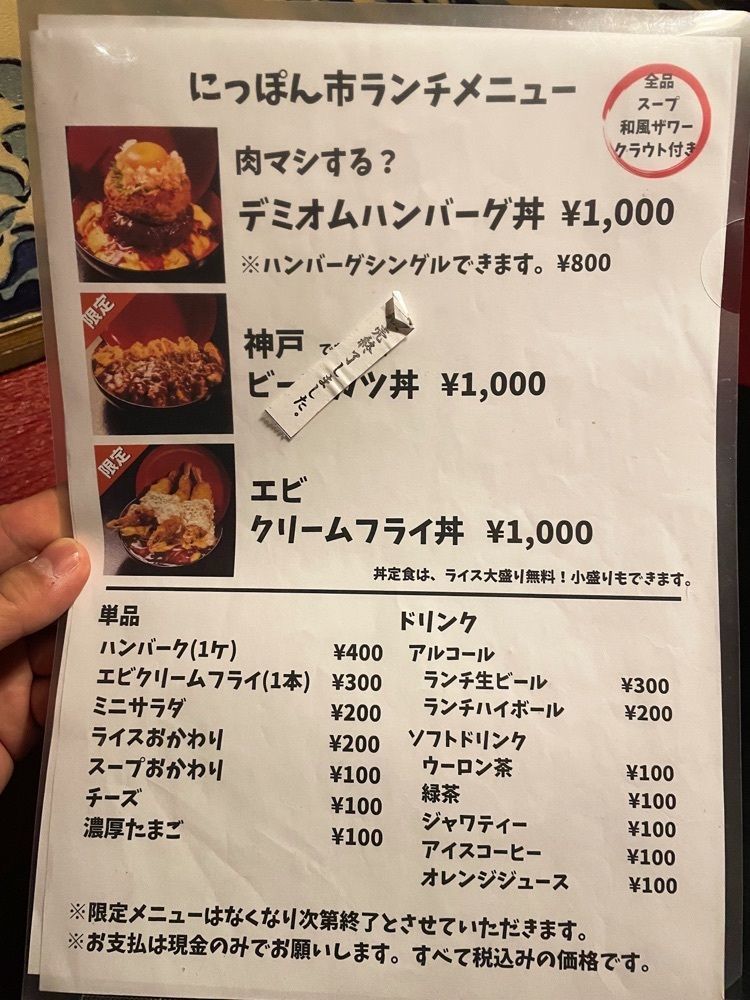 にっぽん市ランチメニュー
全品
スープ
和風ザワー
クラウト付き
肉マシする？
デミオムハンバーグ丼 ¥1,000
※ハンバーグシングルできます。¥800
限定
神戸
ビー ツ丼 ¥1,000
売終了しました。
限定
エビ
クリームフライ丼 ¥1,000
丼定食は、ライス大盛り無料！小盛りもできます。
単品
ハンバーク(1ケ) ¥400
エビクリームフライ(1本) ¥300
ミニサラダ ¥200
ライスおかわり ¥200
スープおかわり ¥100
チーズ ¥100
濃厚たまご ¥100
ドリンク
アルコール
ランチ生ビール ¥300
ランチハイボール ¥200
ソフトドリンク
ウーロン茶 ¥100
緑茶 ¥100
ジャワティー ¥100
アイスコーヒー ¥100
オレンジジュース ¥100
※限定メニューはなくなり次第終了とさせていただきます。
※お支払は現金のみでお願いします。すべて税込みの価格です。